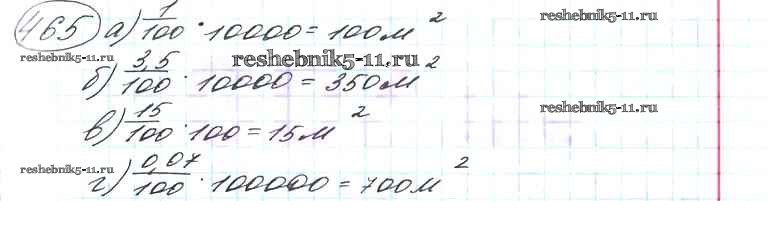 465 а) 1/100 · 10000 = 100 м²
reshebnik5-11.ru
reshebnik5-11.ru
б) 3,5/100 · 10000 = 350 м²
reshebnik5-11.ru
в) 15/100 · 100 = 15 м²
reshebnik5-11.ru
г) 0,07/100 · 100000 = 700 м²